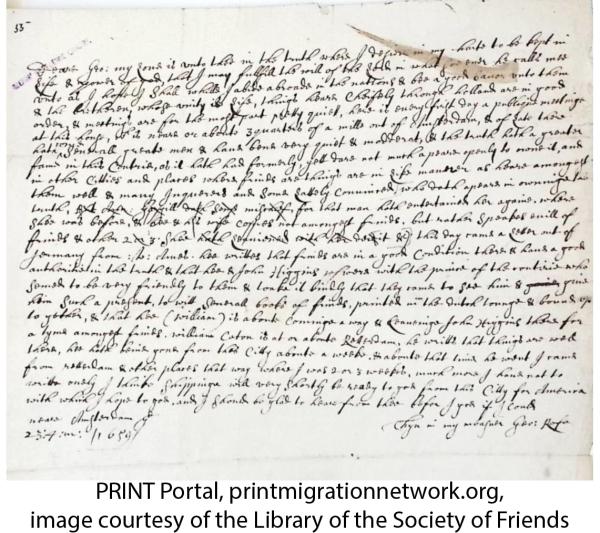 33
Deare Geo: my Love is unto thee in the truth where I desire in my harte to be kept in
Life & power of God, that I may fulfill the will of the Lord in what soever he calls mee
unto as I hope I shall while I abide abroade in the nations & bee a good savor unto them
& the bretheren whose unity is Life, things heare Cheifely through holland are in good
order, & meetings are for the most part pretty quiet, here is every first day a publique meetinge
at this house, is neare or about 3 quarters of a mile out of Amsterdam, & of late there
hath severall greate men & have bene very quiet & moderat, & the truth hath a greater
fame in this Contrie, as it hath had formerly, yett dare not much apeare openly to owne it, and
in other Citties and places where friends are things are in Life maner as heare amongst
them well & many Inquerers and some Lattely Convinced, who doth apeare in owninge the
truth, for that man hath entertained her againe, where
shee was before, & hee & his wife copies not amongst frinds, but rather speakes evill of
frinds & other 2 or 3 this day came a Letter out of
Jermany from: W: Ames: hee writtes that frinds are in a good Condition there & have a good
authoritie in the truth & that hee & John Higgins with the prince of the contrie who
semed to be very friendly to them & tooke it kindly that they came to see him & give
him such a present, to will severall books of frinds, printed in the dutch tounge & bound up
to gether, & that hee (William) is aboute Cominge away & Leaveinge John Higgins there for
a tyme amongst frinds. William Caton is at or aboute Roterdam, he writs that things are well
there, hee hath beine gone from this Citty aboute a weeke & aboute that time he went I came
from roterdam & other places that way where I was 2 or 3 weeks, much more I have not to
writte onely I thinke Shippinge will very shortly be ready to goe from this Citty for America
with which I hope to goe, and I should be glad to heare from thee before I goe if I Could
neare Amsterdam ye
23: 4: mo: /1659/
Thyn in my measuer Geo: Rofe
PRINT Portal, printmigrationnetwork.org,
image courtesy of the Library of the Society of Friends